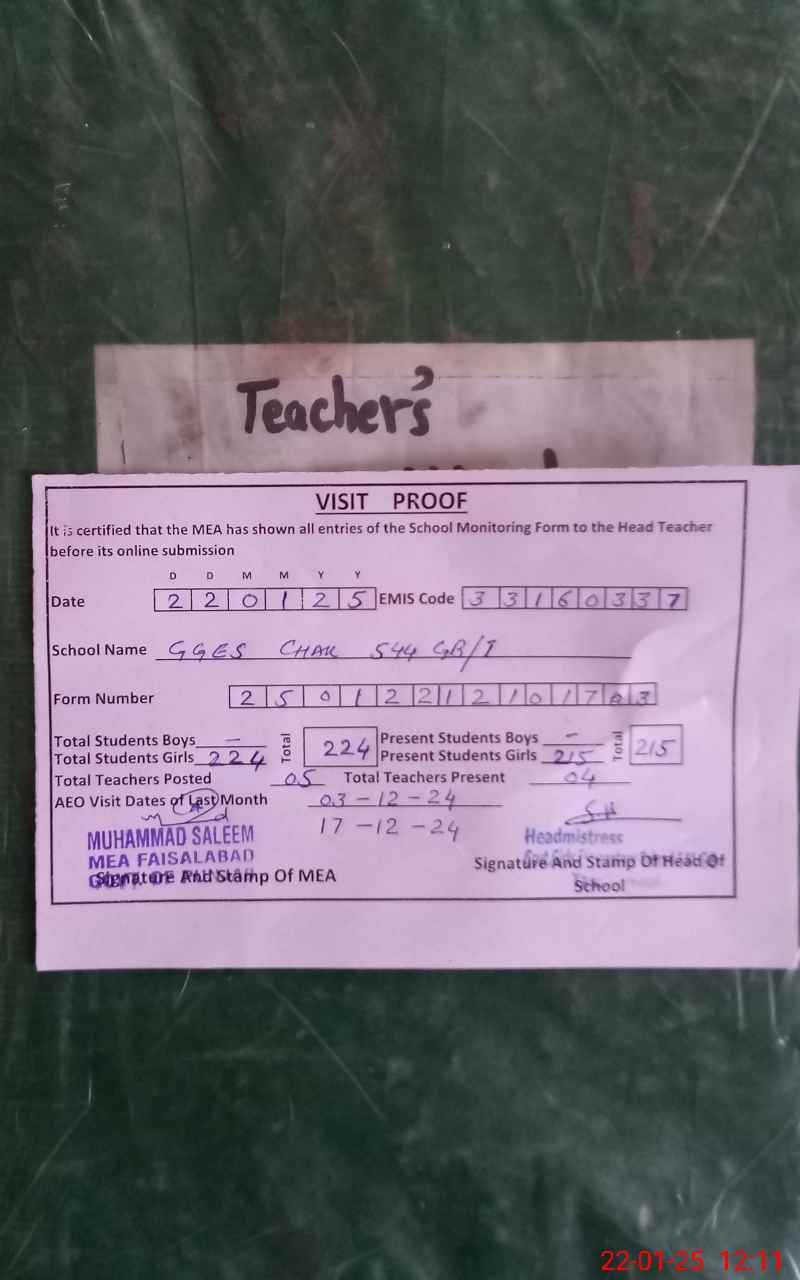 Teacher's
VISIT PROOF
It is certified that the MEA has shown all entries of the School Monitoring Form to the Head Teacher
before its online submission
D D M M Y Y
Date 2 2 0 1 2 5 EMIS Code 3 3 1 6 0 3 3 7
School Name GGES CHAK 544 GB/1
Form Number 2 5 0 1 2 2 1 2 1 0 1 7 0 3
Total Students Boys — Total 224 Present Students Boys — Total 215
Total Students Girls 224 Present Students Girls 215
Total Teachers Posted 05 Total Teachers Present 04
AEO Visit Dates of Last Month 03-12-24
17-12-24
MUHAMMAD SALEEM
MEA FAISALABAD
Headmistress
Signature And Stamp Of MEA
Signature And Stamp Of Head Of
School
22-01-25 12:11